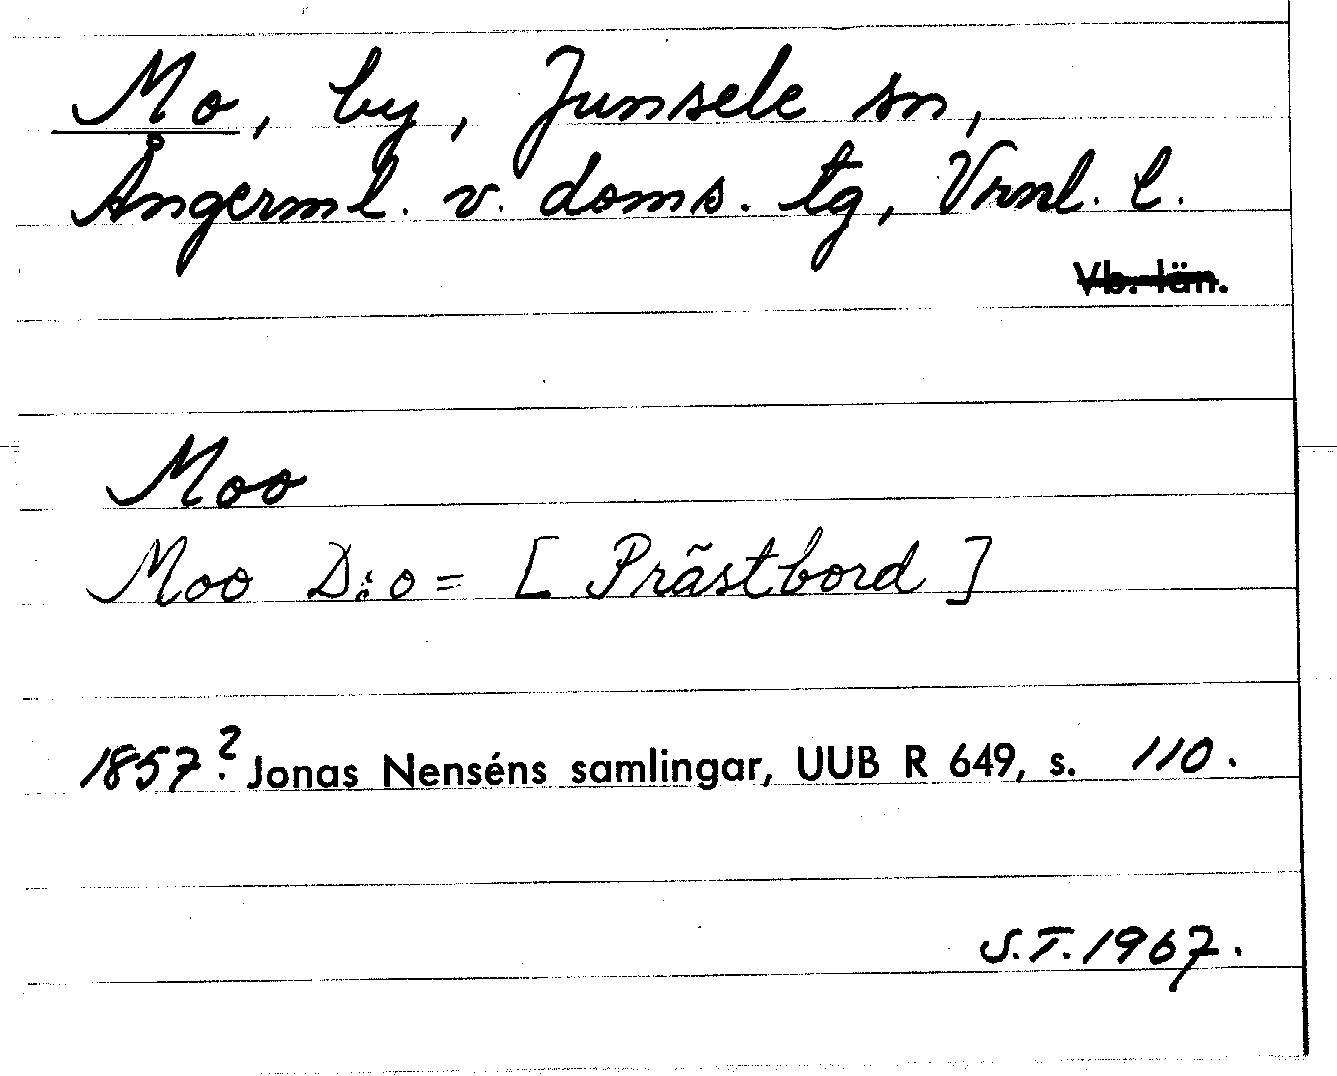 Mo, by, Junsele sn,
Ångerml. v. doms. tg, Vrnl. l.
Vb. län.
Moo
Moo D:o = [ Prästbord ]
1857? Jonas Nenséns samlingar, UUB R 649, s. 110.
S.T. 1967.